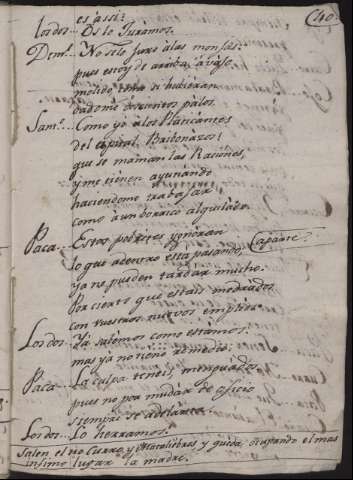 (40
es assi?
Los dos... Os lo Juramos.
Dem.o... No selo juro a las monjas,
pues estoy de arriba, avajo
molido, como si huvieran
dadome doscientos palos.
Sam.o... Como yo a los Platicantes
del Espital. Bribonazos!
que se maman las Raciones,
y me tienen ayunando
haciendome trabajar
como a un borrico alquilado.
Paca... Estos pobretes ygnoran (Aparte.
lo que adentro esta pasando,
ya no pueden tardar mucho.
Por cierto que estais medrados
con vuestros nuevos empleos.
Los dos... Ya savemos como estamos:
mas ya no tiene remedio.
Paca... La culpa teneis, menguados
pues no por mudar de oficio
siempre se adelanta.
Los dos... Lo herramos.
Salen el tio Curro, y Matacaliebres y queda ocupando el mas
infimo lugar la madre.